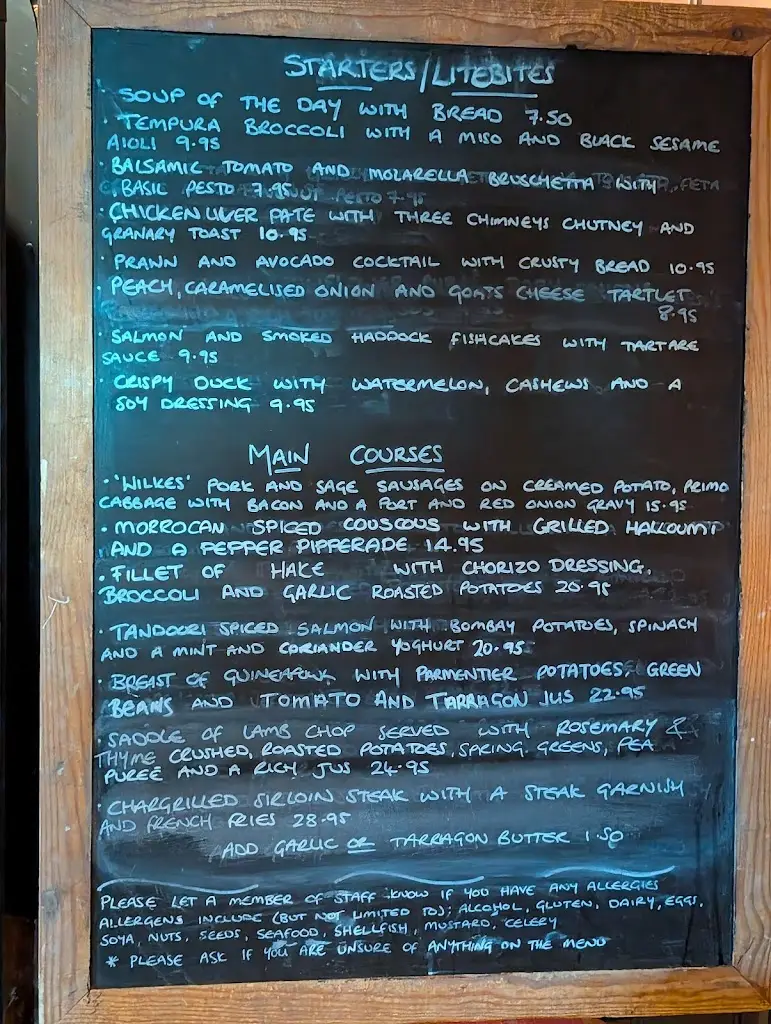 STARTERS/LITEBITES
• SOUP OF THE DAY WITH BREAD 7.50
• TEMPURA BROCCOLI WITH A MISO AND BLACK SESAME
AIOLI 9.95
• BALSAMIC TOMATO AND MOZARELLA BRUSCHETTA WITH
BASIL PESTO 7.95
• CHICKEN LIVER PATE WITH THREE CHIMNEYS CHUTNEY AND
GRANARY TOAST 10.95
• PRAWN AND AVOCADO COCKTAIL WITH CRUSTY BREAD 10.95
• PEACH, CARAMELISED ONION AND GOATS CHEESE TARTLET
8.95
• SALMON AND SMOKED HADDOCK FISHCAKES WITH TARTARE
SAUCE 9.95
• CRISPY DUCK WITH WATERMELON, CASHEWS AND A
SOY DRESSING 9.95
MAIN COURSES
• 'WILKES' PORK AND SAGE SAUSAGES ON CREAMED POTATO, PRIMO
CABBAGE WITH BACON AND A PORT AND RED ONION GRAVY 15.95
• MORROCAN SPICED COUSCOUS WITH GRILLED HALLOUMI
AND A PEPPER PIPPERADE 14.95
• FILLET OF HAKE WITH CHORIZO DRESSING,
BROCCOLI AND GARLIC ROASTED POTATOES 20.95
• TANDOORI SPICED SALMON WITH BOMBAY POTATOES, SPINACH
AND A MINT AND CORIANDER YOGHURT 20.95
• BREAST OF GUINEAFOWL WITH PARMENTIER POTATOES, GREEN
BEANS AND TOMATO AND TARRAGON JUS 22.95
SADDLE OF LAMB CHOP SERVED WITH ROSEMARY &
THYME CRUSHED, ROASTED POTATOES, SPRING GREENS, PEA
PUREE AND A RICH JUS 24.95
• CHARGRILLED SIRLOIN STEAK WITH A STEAK GARNISH
AND FRENCH FRIES 28.95
ADD GARLIC OR TARRAGON BUTTER 1.50
PLEASE LET A MEMBER OF STAFF KNOW IF YOU HAVE ANY ALLERGIES
ALLERGENS INCLUDE (BUT NOT LIMITED TO); ALCOHOL, GLUTEN, DAIRY, EGGS,
SOYA, NUTS, SEEDS, SEAFOOD, SHELLFISH, MUSTARD, CELERY
* PLEASE ASK IF YOU ARE UNSURE OF ANYTHING ON THE MENU